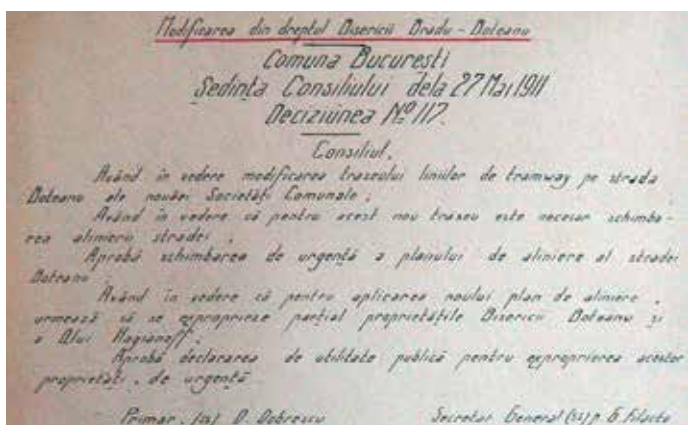 Modificarea din dreptul Bisericii Bradu - Boteanu
Comuna Bucuresti
Ședința Consiliului dela 27 Mai 1911
Deciziunea Nº 117.
Consiliul,
Având în vedere modificarea traseului liniilor de tramway pe strada
Boteanu ale nouăei Societăți Comunale ;
Având în vedere că pentru acest nou traseu este necesar schimba-
rea alinierii stradei ;
Aprobă schimbarea de urgență a planului de aliniere al stradei
Boteanu
Având în vedere că pentru aplicarea noului plan de aliniere ,
urmează să se exproprieze parțial proprietățile Bisericii Boteanu și
a Dlui Hagianoff ;
Aprobă declararea de utilitate publică pentru exproprierea acestor
proprietăți , de urgență
Primar , (ss) D. Dobrescu
Secretar General (ss) p. G. Filactu